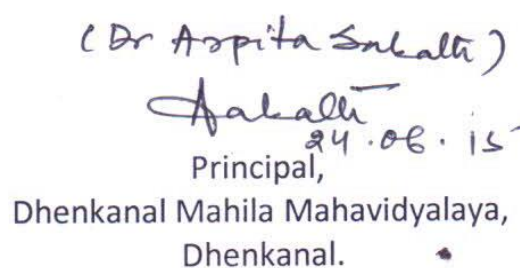 (Dr Arpita
24.06.15
Principal,
Dhenkanal Mahila Mahavidyalaya,
Dhenkanal.